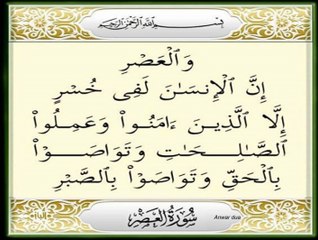 بِسْمِ اللَّهِ الرَّحْمَٰنِ الرَّحِيمِ
وَٱلْعَصْرِ
إِنَّ ٱلْإِنسَـٰنَ لَفِى خُسْرٍ
إِلَّا ٱلَّذِينَ ءَامَنُوا۟ وَعَمِلُوا۟
ٱلصَّـٰلِحَـٰتِ وَتَوَاصَوْا۟
بِٱلْحَقِّ وَتَوَاصَوْا۟ بِٱلصَّبْرِ
سُورَةُ العَصْرِ
Anwar dua